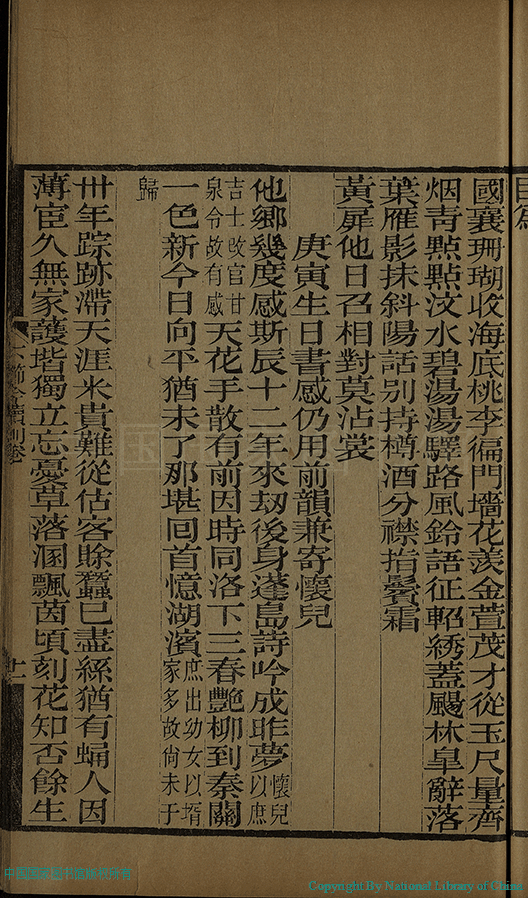 國襄珊瑚收海底桃李徧門墻花羨金萱茂才從玉尺量齊
烟靑點點汶水碧湯湯驛路風鈴語征軺綉蓋颺林皐辭落
葉雁影抹斜陽話别持樽酒分襟指鬢霜
黃扉他日召相對莫沾裳
庚寅生日書感仍用前韻兼寄懷兒
他鄉幾度感斯辰十二年來刼後身蓬島詩吟成昨夢懷兒以庶
吉士改官甘
泉令故有感天花手散有前因時同洛下三春艷柳到秦關
一色新今日向平猶未了那堪回首憶湖濱庶出幼女以壻
家多故尙未于
歸
卅年踪跡滯天涯米貴難從估客賒蠶已盡絲猶有蛹人因
薄宦久無家護堦獨立忘憂草落溷飄茵頃刻花知否餘生
十一
中国国家图书馆版权所有
Copyright By National Library of China